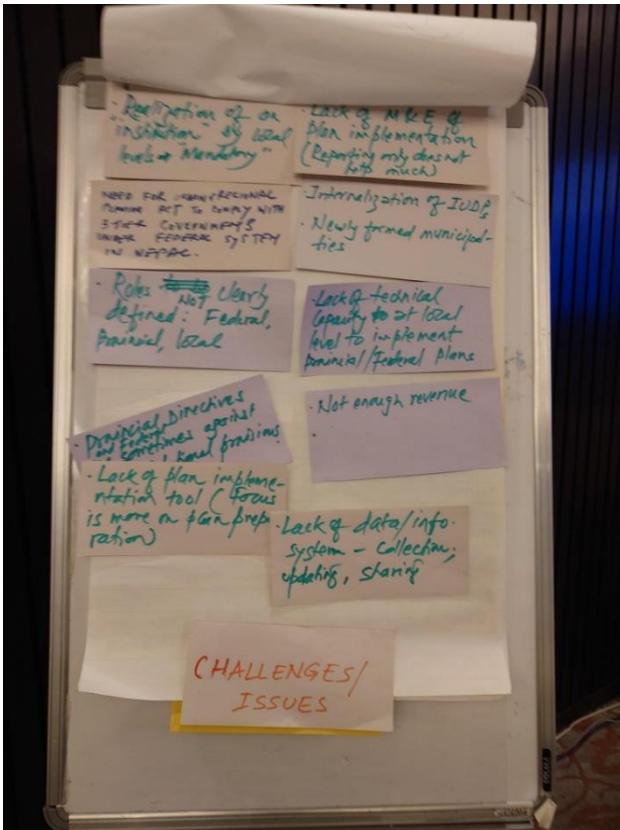 · Realization of an
"institution" by local
levels → "Mandatory"
· Lack of M&E of
plan implementation
(Reporting only does not
help much)
NEED FOR REGIONAL
ACT TO COMPLY WITH
3 TIER GOVERNMENTS
UNDER FEDERAL SYSTEM
IN NEPAL.
· Internalization of IUDPs
· Newly formed municipali-
ties
· Roles NOT clearly
defined: Federal,
provincial, local
· Lack of technical
capacity at local
level to implement
provincial/Federal Plans
· Provincial Directives
and Federal
sometimes against
provisions
· Not enough revenue
· Lack of plan impleme-
ntation tool (Focus
is more on plan prepa
ration)
· Lack of data/info.
system - collection,
updating, sharing
CHALLENGES/
ISSUES